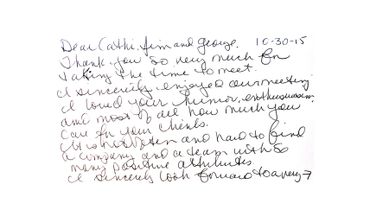 Dear Cathi, Jim and George, 10-30-15
Thank you so very much for
taking the time to meet.
I sincerely enjoyed our meeting.
I loved your humor, enthusiasm,
and most of all how much you
care for your clients.
It is not often and hard to find
a company and a team with so
many positive attributes.
I sincerely look forward to a very →